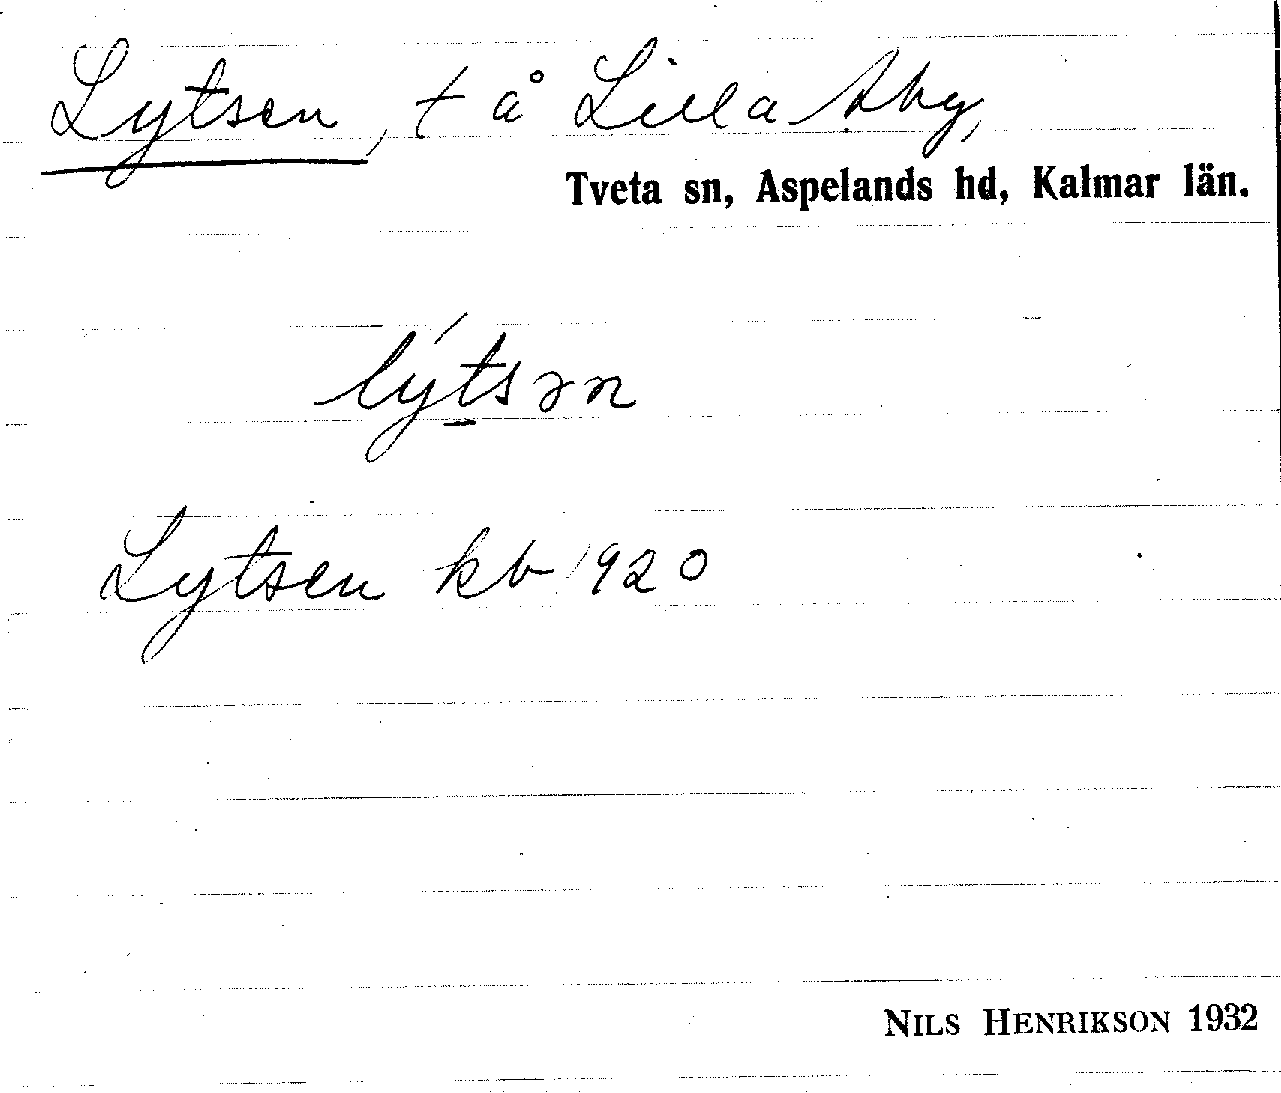 Lytsen, t å Lilla Aby,
Tveta sn, Aspelands hd, Kalmar län.
lýtsən
Lytsen kb 1920
NILS HENRIKSON 1932